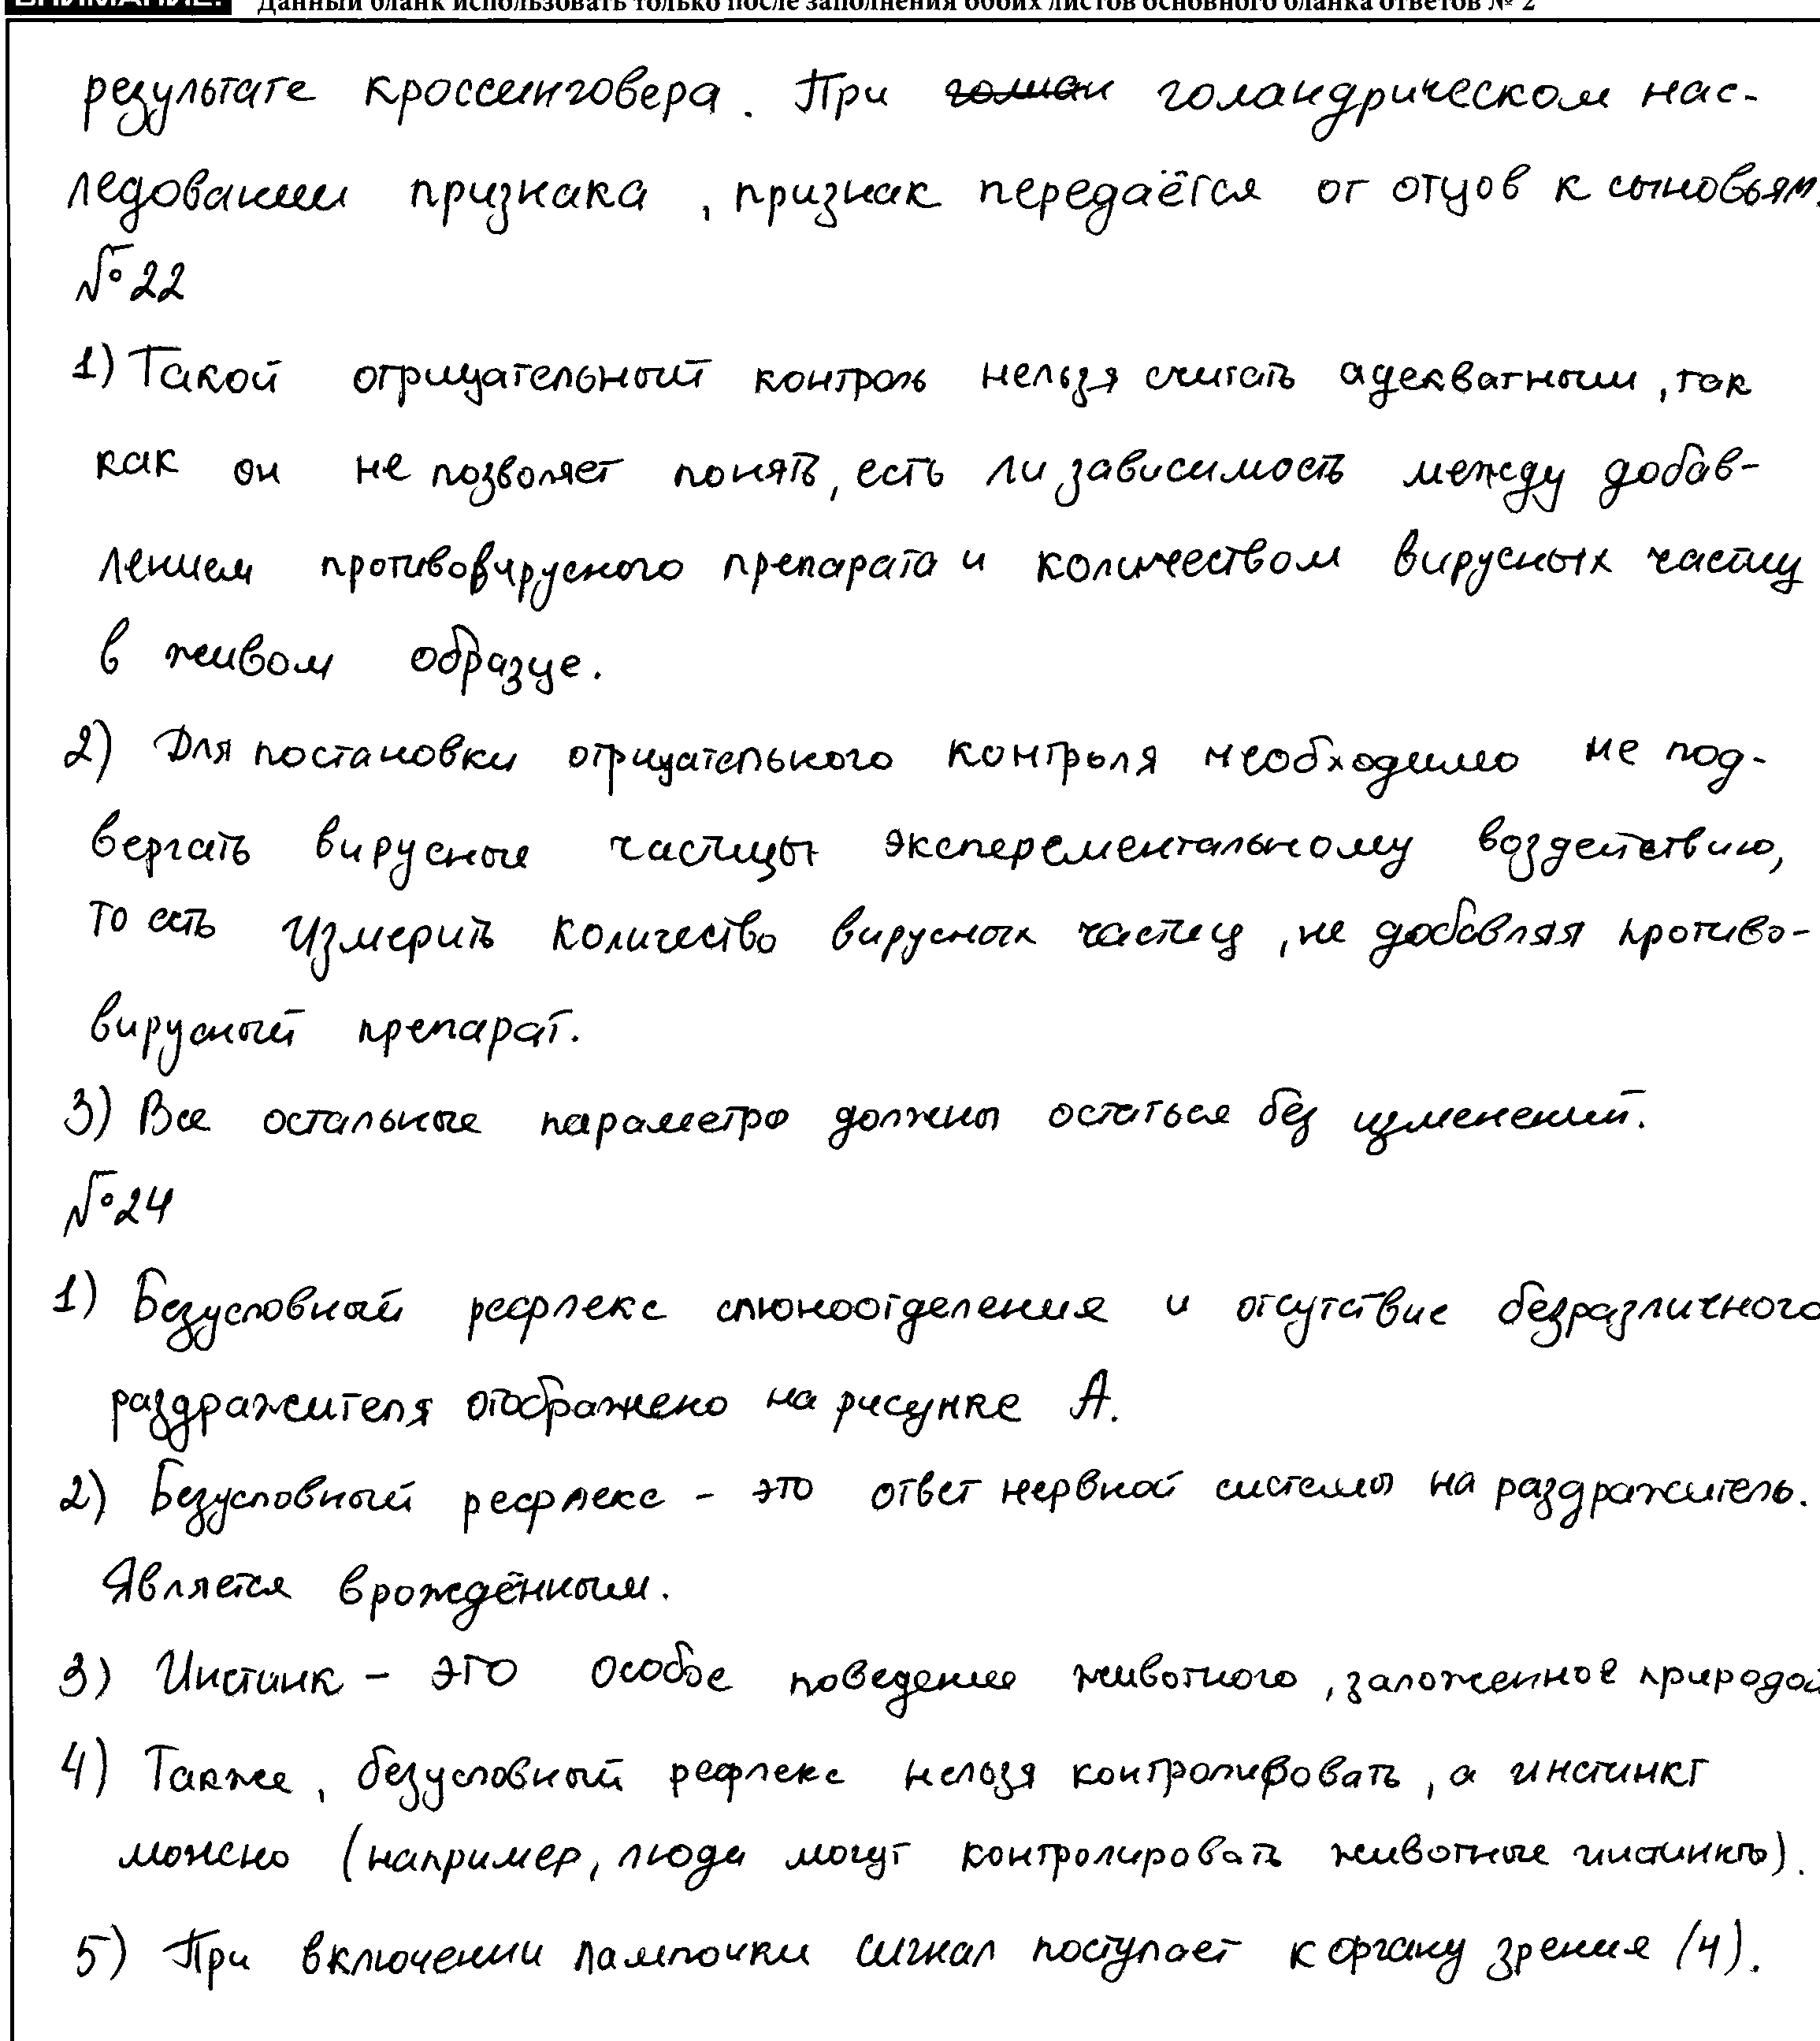 ВНИМАНИЕ! Данный бланк использовать только после заполнения обоих листов основного бланка ответов № 2
результате кроссинговера. При голандрическом нас-
ледовании признака, признак передаётся от отцов к сыновьям.
№22
1) Такой отрицательный контроль нельзя считать адекватным, так
как он не позволяет понять, есть ли зависимость между добав-
лением противовирусного препарата и количеством вирусных частиц
в живом образце.
2) Для постановки отрицательного контроля необходимо не под-
вергать вирусные частицы эксперементальному воздействию,
то есть измерить количество вирусных частиц, не добавляя противо-
вирусный препарат.
3) Все остальные параметры должны остаться без изменений.
№24
1) Безусловный рефлекс слюноотделения и отсутствие безразличного
раздражителя отображено на рисунке А.
2) Безусловный рефлекс - это ответ нервной системы на раздражитель.
Является врождённым.
3) Инстинк - это особое поведение животного, заложенное природой
4) Также, безусловный рефлекс нельзя контролировать, а инстинкт
можно (например, люди могут контролировать животные инстинкты).
5) При включении лампочки сигнал поступает к органу зрения (4).